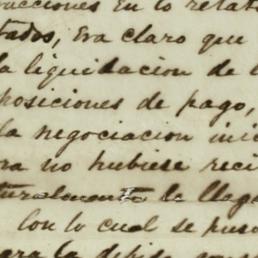 acciones En lo relat
tados, Era claro que
la liquidacion de l
posiciones de pago,
la negociacion ini
ra no hubiese reci
turalmente le lleg
Con lo cual se puso